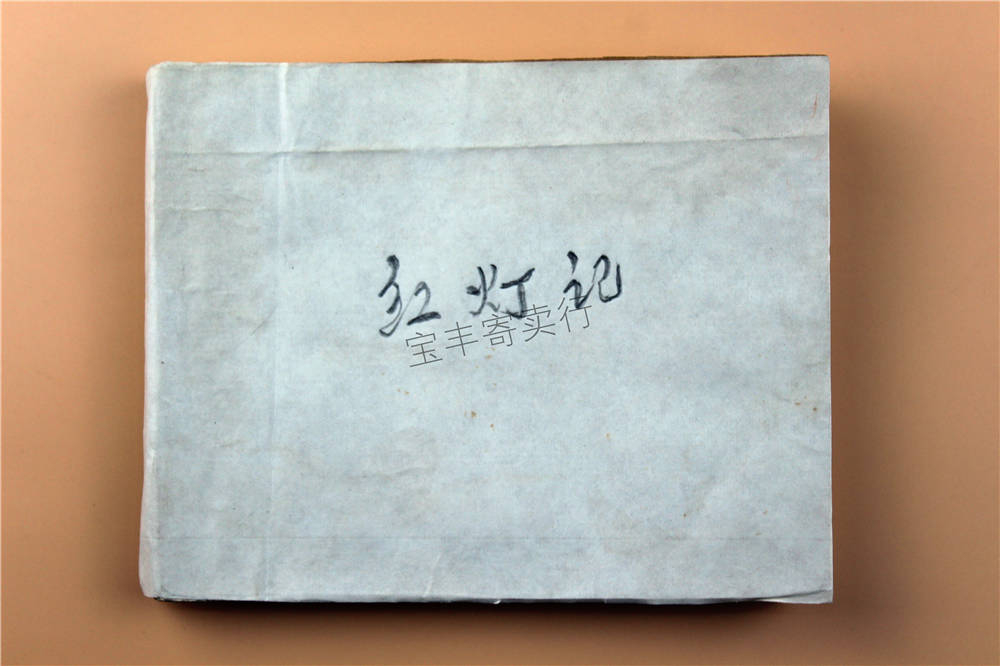 红灯记
宝丰寄卖行